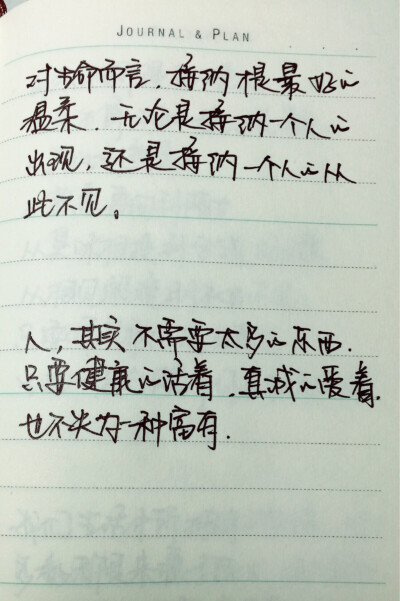 JOURNAL & PLAN
对生命而言，接纳很是最好的
温柔，无论是接纳一个人的
出现，还是接纳一个人的从
此不见。
人，其实不需要太多的东西，
只要健康的活着，真诚的爱着，
也不失为一种富有.